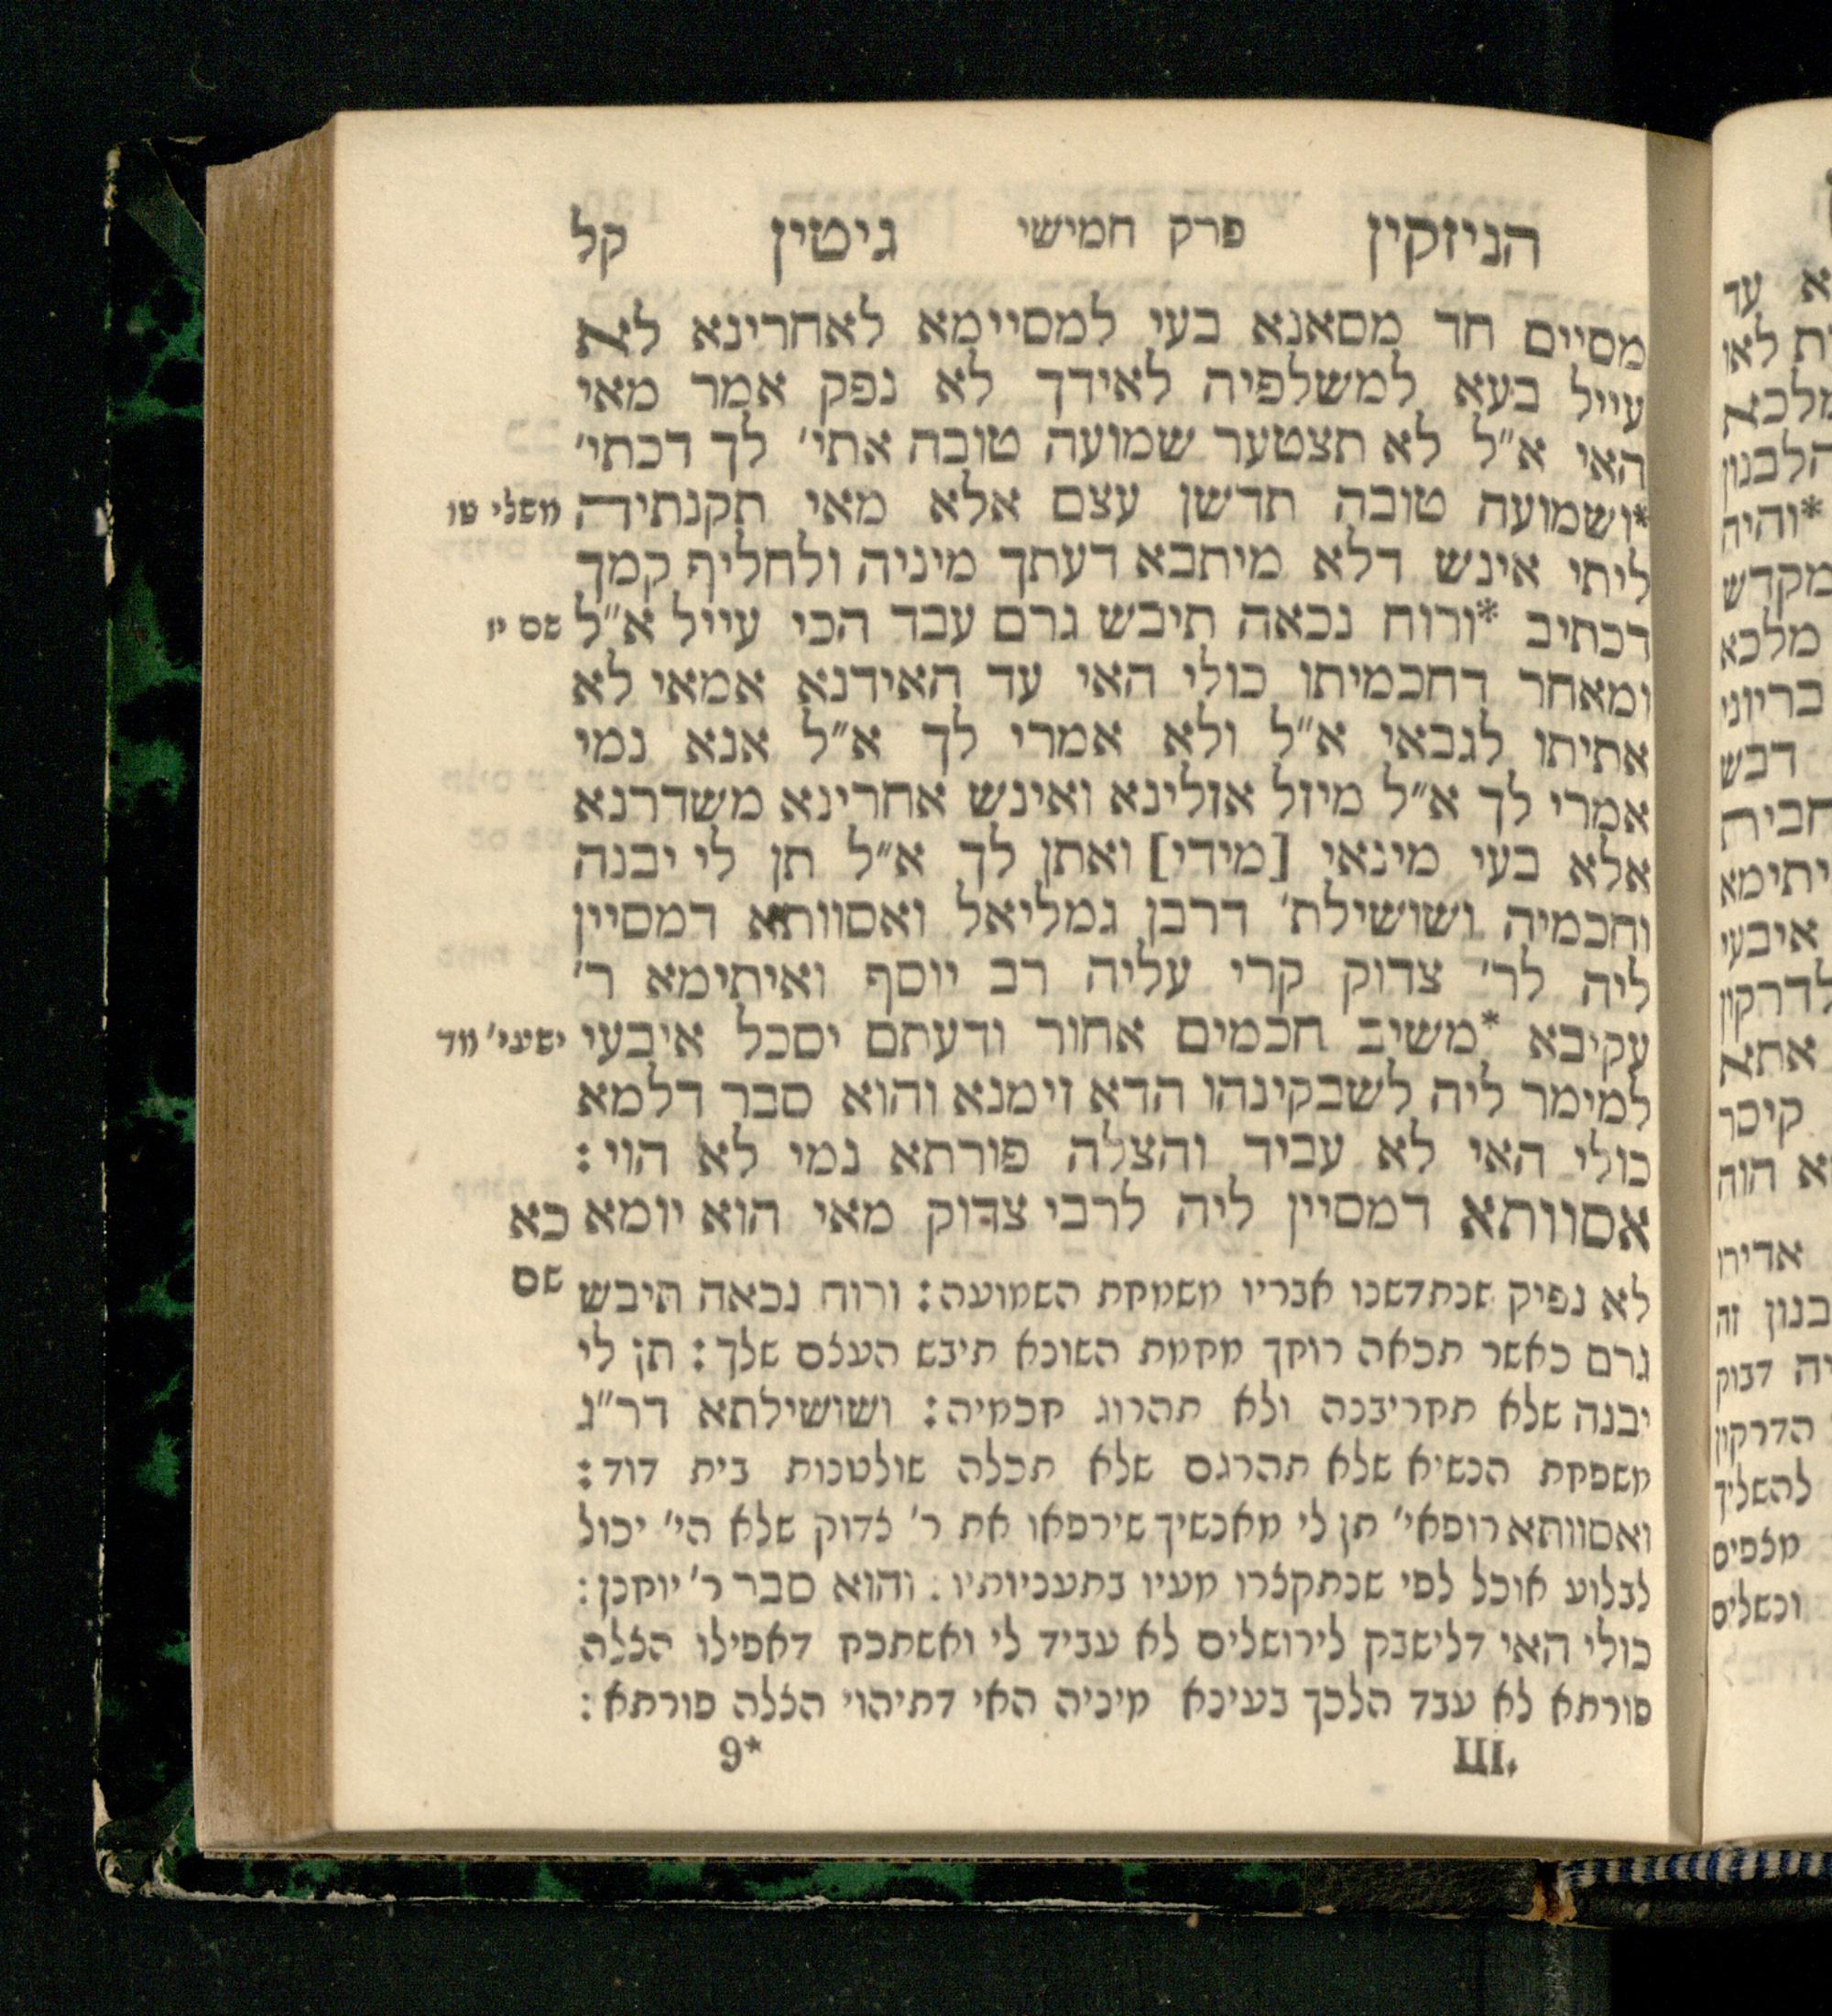 הניזקין פרק חמישי גיטין קל
מסיים חד מסאנא בעי למסיימא לאחרינא לא
עייל בעא למשלפיה לאידך לא נפק אמר מאי
האי א״ל לא תצטער שמועה טובה אתי׳ לך דכתי׳
*ושמועה טובה תדשן עצם אלא מאי תקנתיה משלי טו
ליתי אינש דלא מיתבא דעתך מיניה ולחליף קמך
דכתיב *ורוח נכאה תיבש גרם עבד הכי עייל א״ל שם יז
ומאחר דחכמיתו כולי האי עד האידנא אמאי לא
אתיתו לגבאי א״ל ולא אמרי לך א״ל אנא נמי
אמרי לך א״ל מיזל אזלינא ואינש אחרינא משדרנא
אלא בעי מינאי [מידי] ואתן לך א״ל תן לי יבנה
וחכמיה ושושילת׳ דרבן גמליאל ואסוותא דמסיין
ליה לר׳ צדוק קרי עליה רב יוסף ואיתימא ר׳
עקיבא *משיב חכמים אחור ודעתם יסכל איבעי ישעי׳ מד
למימר ליה לשבקינהו הדא זימנא והוא סבר דלמא
כולי האי לא עביד והצלה פורתא נמי לא הוי:
אסוותא דמסיין ליה לרבי צדוק מאי הוא יומא כא
שם
לא נפיק שנתדשנו אבריו משמחת השמועה: ורוח נכאה תיבש
גרם כאשר תכאה רוחך מחמת השונא תיבש העצם שלך: תן לי
יבנה שלא תחריבנה ולא תהרוג חכמיה: ושושילתא דר״ג
משפחת הנשיא שלא תהרגם שלא תכלה שולטנות בית דוד:
ואסוותא רופאי׳ תן לי מאנשיך שירפאו את ר׳ צדוק שלא הי׳ יכול
לבלוע אוכל לפי שנתקצרו מעיו בתעניותיו: והוא סבר ר׳ יוחנן:
כולי האי דלישבק לירושלים לא עביד לי ואשתכח דאפילו הצלה
פורתא לא עבד הלכך בעינא מיניה האי דתיהוי הצלה פורתא:
III. 9*
א עד
ת לאו
מלכא
הלבנון
*והיה
מקדש
מלכא
בריוני
דבש
חבית
יתימא
איבעי
לדרקון
אתא
קיסר
א הוה
אדירו
בנון זה
יה דבוק
הדרקון
להשליך
מצפים
וכשלים